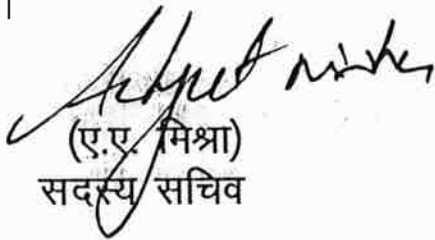 (ए.ए. मिश्रा)
सदस्य सचिव